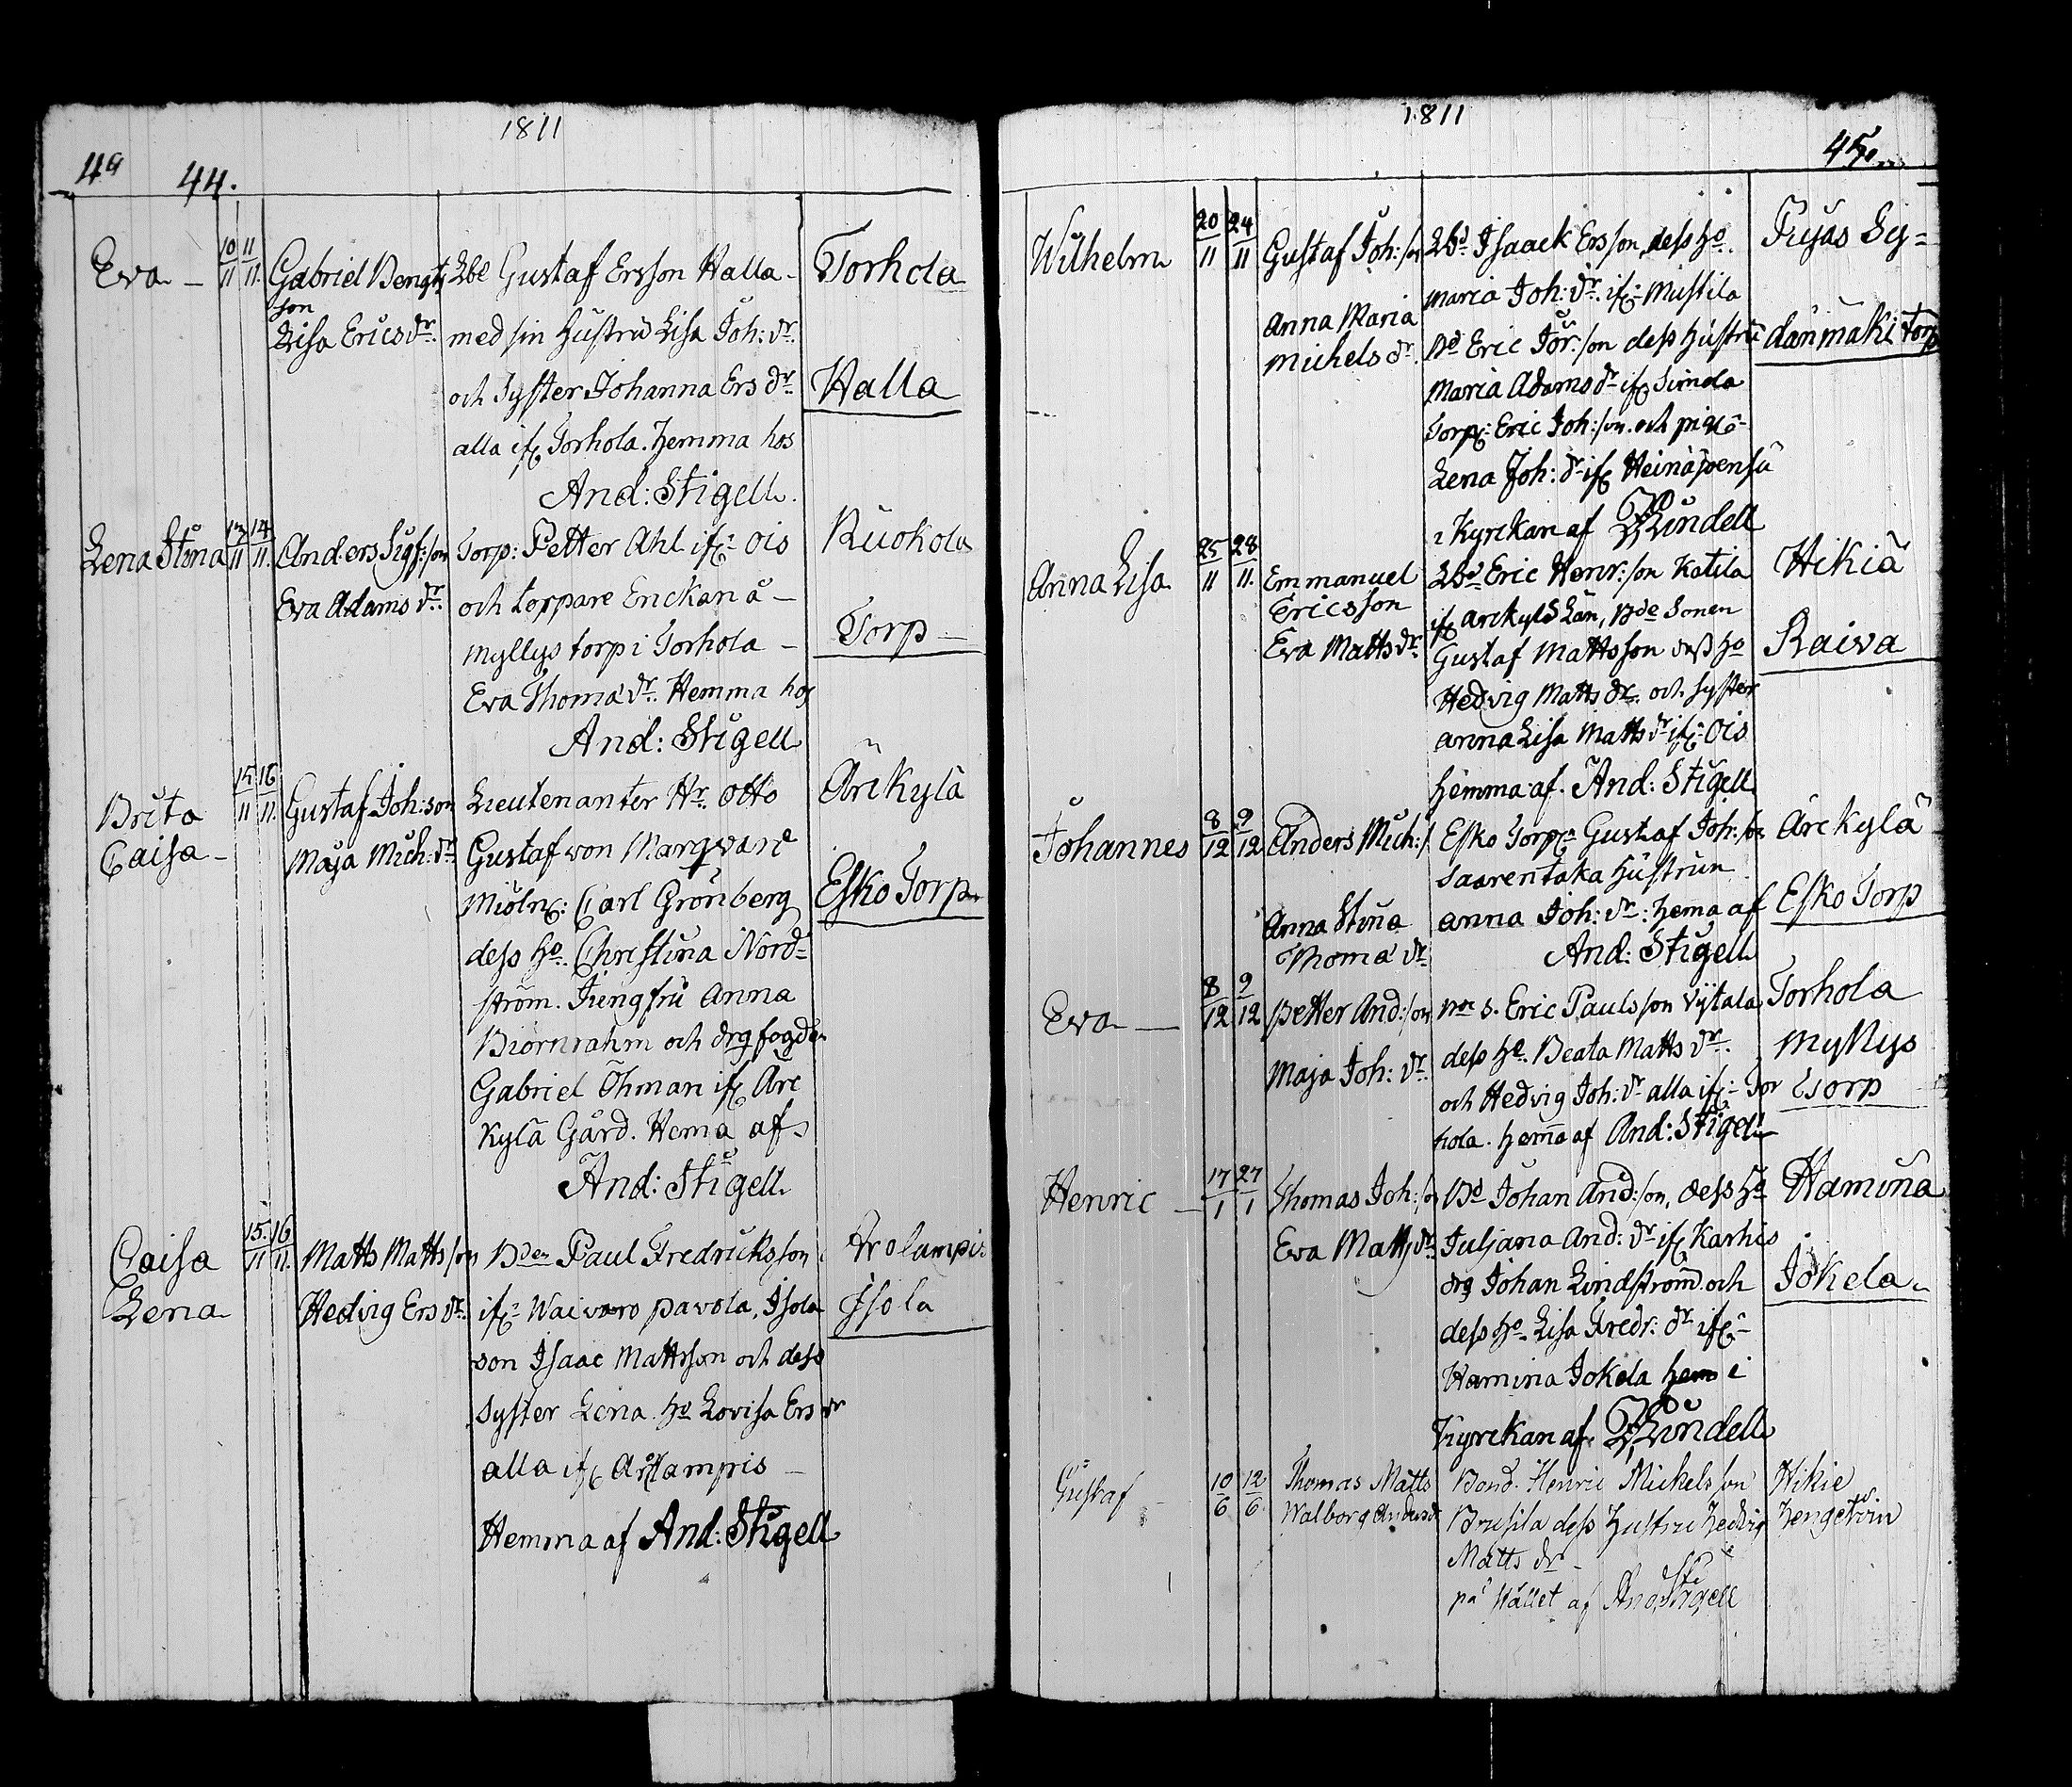 1811
4a 44.
Eva
10/11 11/11.
Gabriel Bengts
son
Lisa Ericsdr.
Lbe Gustaf Ersson Halla
med sin Hustru Lisa Joh: dr.
och Syster Johanna Ers dr.
alla if. Torhola. hemma hos
And: Stigell.
Torhola
Halla
Lena Stina
13/11 14/11.
Anders Sigf:son
Eva Adams dr.
Torp: Petter Ahl if. Ois
och torpare Enckan å
myllys torp i Torhola
Eva Thoma dr. Hemma hos
And: Stigell
Ruokola
Torp
Brita
Caisa
15/11 16/11.
Gustaf Joh:son
Maja Mich: dr.
Lieutenanter Hr. Otto
Gustaf von Marqvard
Miöln: Carl Grönberg
dess ho. Christina Nord=
ström. Jungfru Anna
Biörnrahm och drg fogden
Gabriel Öhman if. Äre
kylä Gård. Hema af
And: Stigell.
Ärekylä
Esko Torp
Caisa
Lena
15./11 16/11.
Matts Matts son
Hedvig Ers dr.
Bden Paul Fredricksson
if. Waivaro pavola, Isola
son Isaac Mattsson och dess
Syster Lena. ho Lovisa Ers dr
alla if. Arolampis
Hemma af And: Stigell
Arolampis
Isola
1811
45.
Wilhelm
20/11 24/11
Gustaf Joh:son
Anna Maria
Michels dr.
Lbd Isaack Ersson, dess ho.
Maria Joh: dr. if. Mistila
Bd Eric Jör:son dess hustru
Maria Adams dr if. Simola
Torp: Eric Joh:son. och piga
Lena Joh: dr if. Heinäjoensu
i Kyrckan af Lundell
Pujas Sy=
dänmaki torp
Anna Lisa
25/11 28/11.
Emmanuel
Ericsson
Eva Matts dr.
Lbd Eric Henr:son Katila
if. arckylä Län, Bde Sonen
Gustaf Mattsson dess ho
Hedvig Matts dr. och Syster
Anna Lisa Matts dr if. Ois
hemma af. And: Stigell
Hikiä
Raiva
Johannes
8/12 9/12
Anders Mich:s
Anna Stina
Thoma dr.
Esko Torp. Gustaf Joh:son
Saarentaka Hustrun
anna Joh: dr: hema af
And: Stigell
Äreckylä
Esko Torp
Eva
8/12 9/12
Petter And:son
Maja Joh: dr.
Eric Paulsson Vÿtala
dess ho. Beata Matts dr.
och Hedvig Joh: dr alla if. Tor
hola. hema af And: Stigell
Torhola
Myllys
torp
Henric
17/1 27/1
Thomas Joh:son
Eva Matts dr.
Bd Johan And:son, dess ho
Juljana And: dr if. Karhis
drg Johan Lindström och
dess ho. Lisa Fredr: dr if.
Hamina Jokela hem i
Kyrckan af. Lundell
Hamina
Jokela
Gustaf
10/6 12/6.
Thomas Matts
Walborg Anders d
Bond. Henric Michelsson
Brusila dess Hustru Hedvig
Matts dr
på Stället af And. Stigell
Hikie